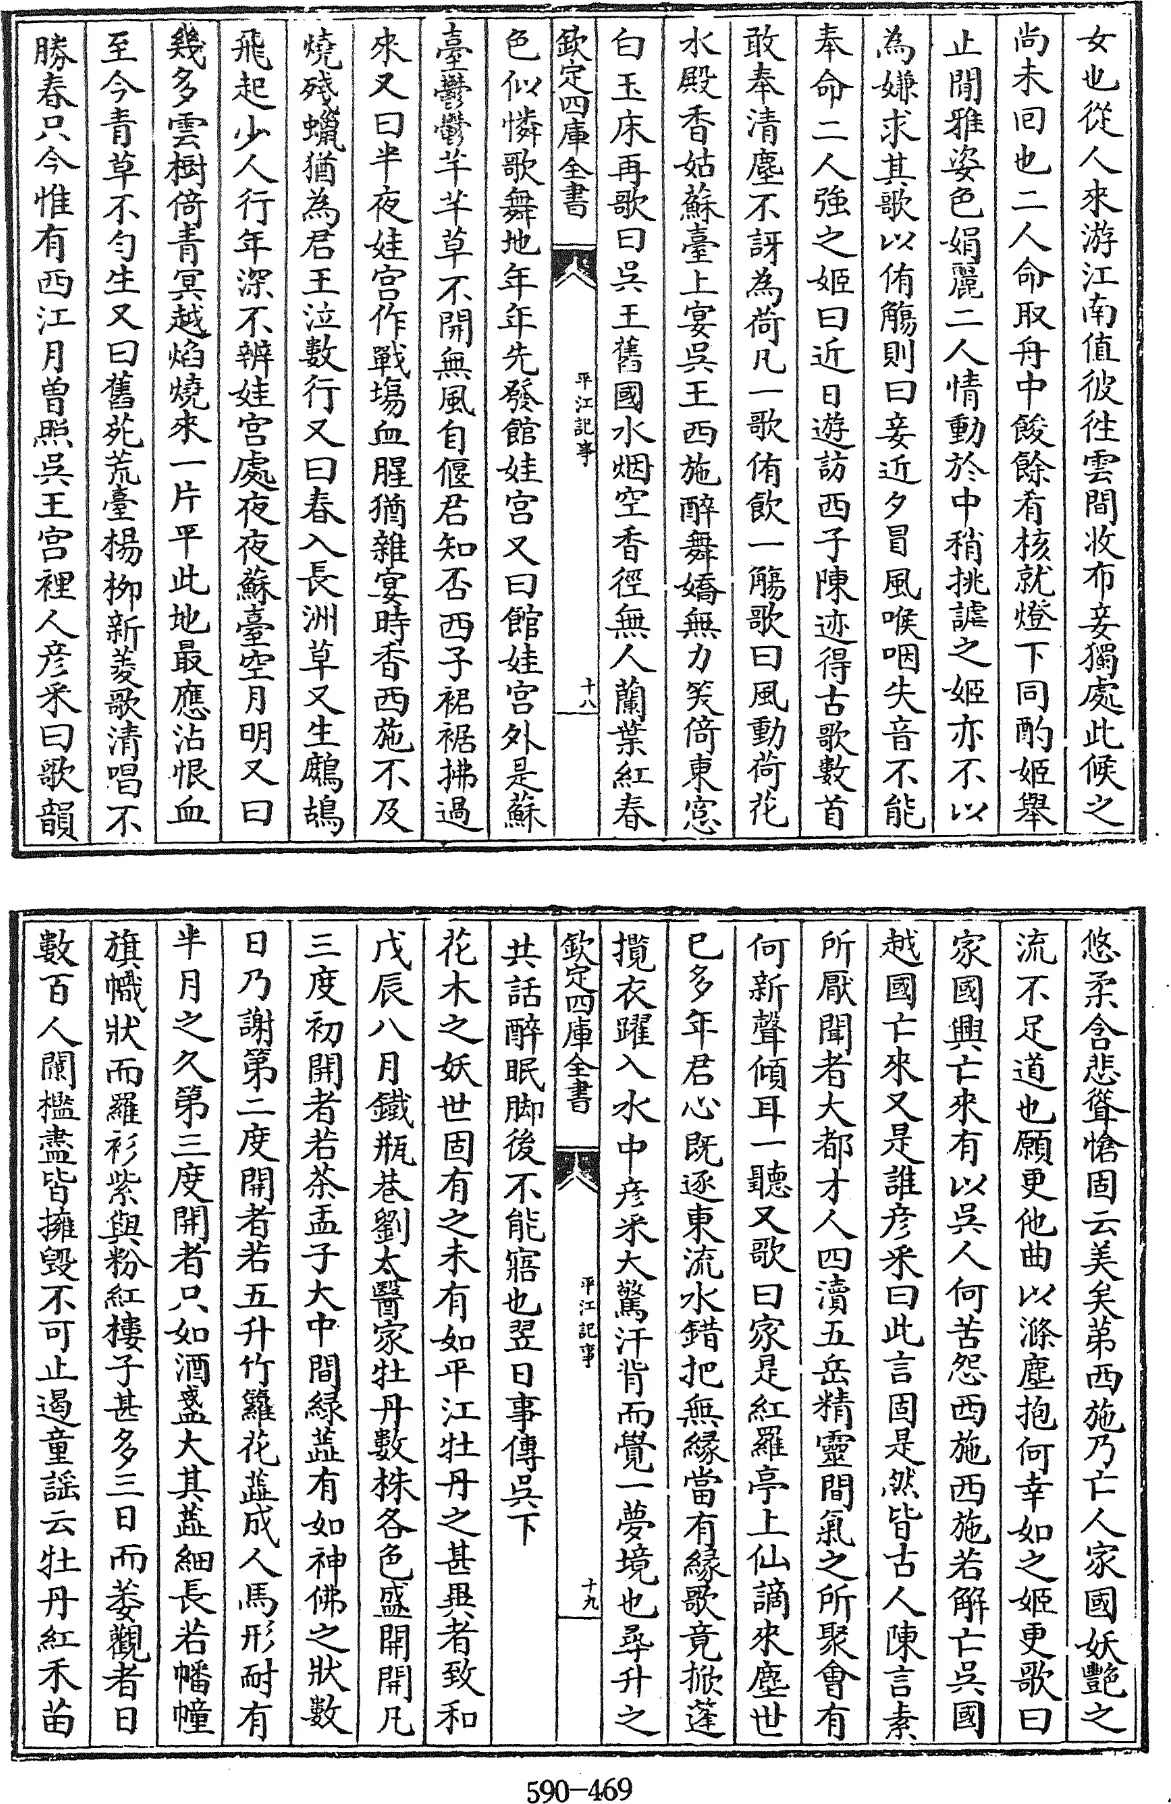 女也從人來游江南值彼往雲間收布妾獨處此候之
尚未回也二人命取舟中餕餘肴核就燈下同酌姬舉
止閒雅姿色娟麗二人情動於中稍挑謔之姬亦不以
為嫌求其歌以侑觴則曰妾近夕冒風喉咽失音不能
奉命二人強之姬曰近日遊訪西子陳迹得古歌數首
敢奉清塵不訝為荷凡一歌侑飲一觴歌曰風動荷花
水殿香姑蘇臺上宴吳王西施醉舞嬌無力笑倚東窓
白玉床再歌曰吳王舊國水烟空香徑無人蘭葉紅春
欽定四庫全書
平江記事
十八
色似憐歌舞地年年先發館娃宮又曰館娃宮外是蘇
臺鬱鬱芊芊草不開無風自偃君知否西子裙裾拂過
來又曰半夜娃宮作戰場血腥猶雜宴時香西施不及
燒殘蠟猶為君王泣數行又曰春入長洲草又生鷓鴣
飛起少人行年深不辨娃宮處夜夜蘇臺空月明又曰
幾多雲樹倚青冥越焰燒來一片平此地最應沾恨血
至今青草不匀生又曰舊苑荒臺楊柳新菱歌清唱不
勝春只今惟有西江月曾照吳王宮裡人彥釆曰歌韻
悠柔含悲聳愴固云美矣第西施乃亡人家國妖艷之
流不足道也願更他曲以滌塵抱何幸如之姬更歌曰
家國興亡來有以吳人何苦怨西施西施若解亡吳國
越國亡來又是誰彥釆曰此言固是然皆古人陳言素
所厭聞者大都才人四瀆五岳精靈間氣之所聚會有
何新聲傾耳一聽又歌曰家是紅羅亭上仙謫來塵世
已多年君心既逐東流水錯把無緣當有緣歌竟掀蓬
攬衣躍入水中彥釆大驚汗背而覺一夢境也尋升之
欽定四庫全書
平江記事
十九
共話醉眠脚後不能寤也翌日事傳吳下
花木之妖世固有之未有如平江牡丹之甚異者致和
戊辰八月鐵瓶巷劉太醫家牡丹數株各色盛開開凡
三度初開者若茶盂子大中間綠蕋有如神佛之狀數
日乃謝第二度開者若五升竹籮花蕋成人馬形耐有
半月之久第三度開者只如酒盞大其蕋細長若幡幢
旗幟狀而羅衫紫與粉紅樓子甚多三日而萎觀者日
數百人闌檻盡皆擁毀不可止遏童謠云牡丹紅禾苗
590-469